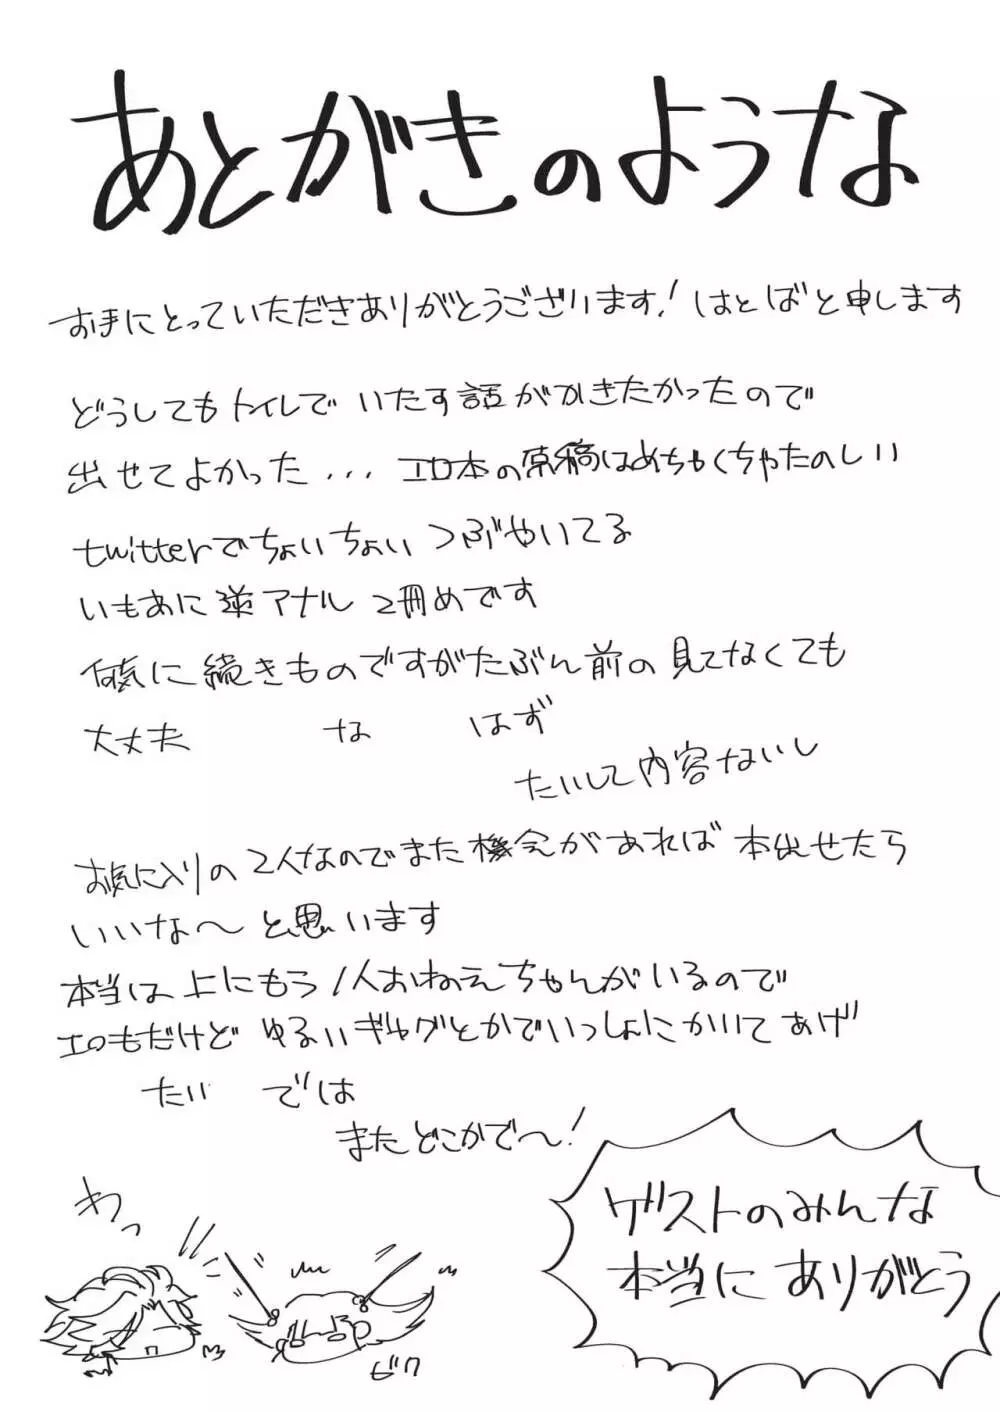 あとがきのような
お手にとっていただきありがとうございます！はとばと申します
どうしてもトイレでいたす話がかきたかったので
出せてよかった... エロ本の原稿はめちゃくちゃたのしい
twitterでちょいちょいつぶやいてる
いもあに逆アナル2冊めです
何気に続きものですがたぶん前の見てなくても
大丈夫 な はず
たいして内容ないし
お気に入りの2人なのでまた機会があれば本出せたら
いいな〜と思います
本当は上にもう1人おねえちゃんがいるので
エロもだけどゆるいギャグとかでいっしょにかいてあげ
たい では
またどこかで〜！
わっ
ビク
ゲストのみんな
本当にありがとう